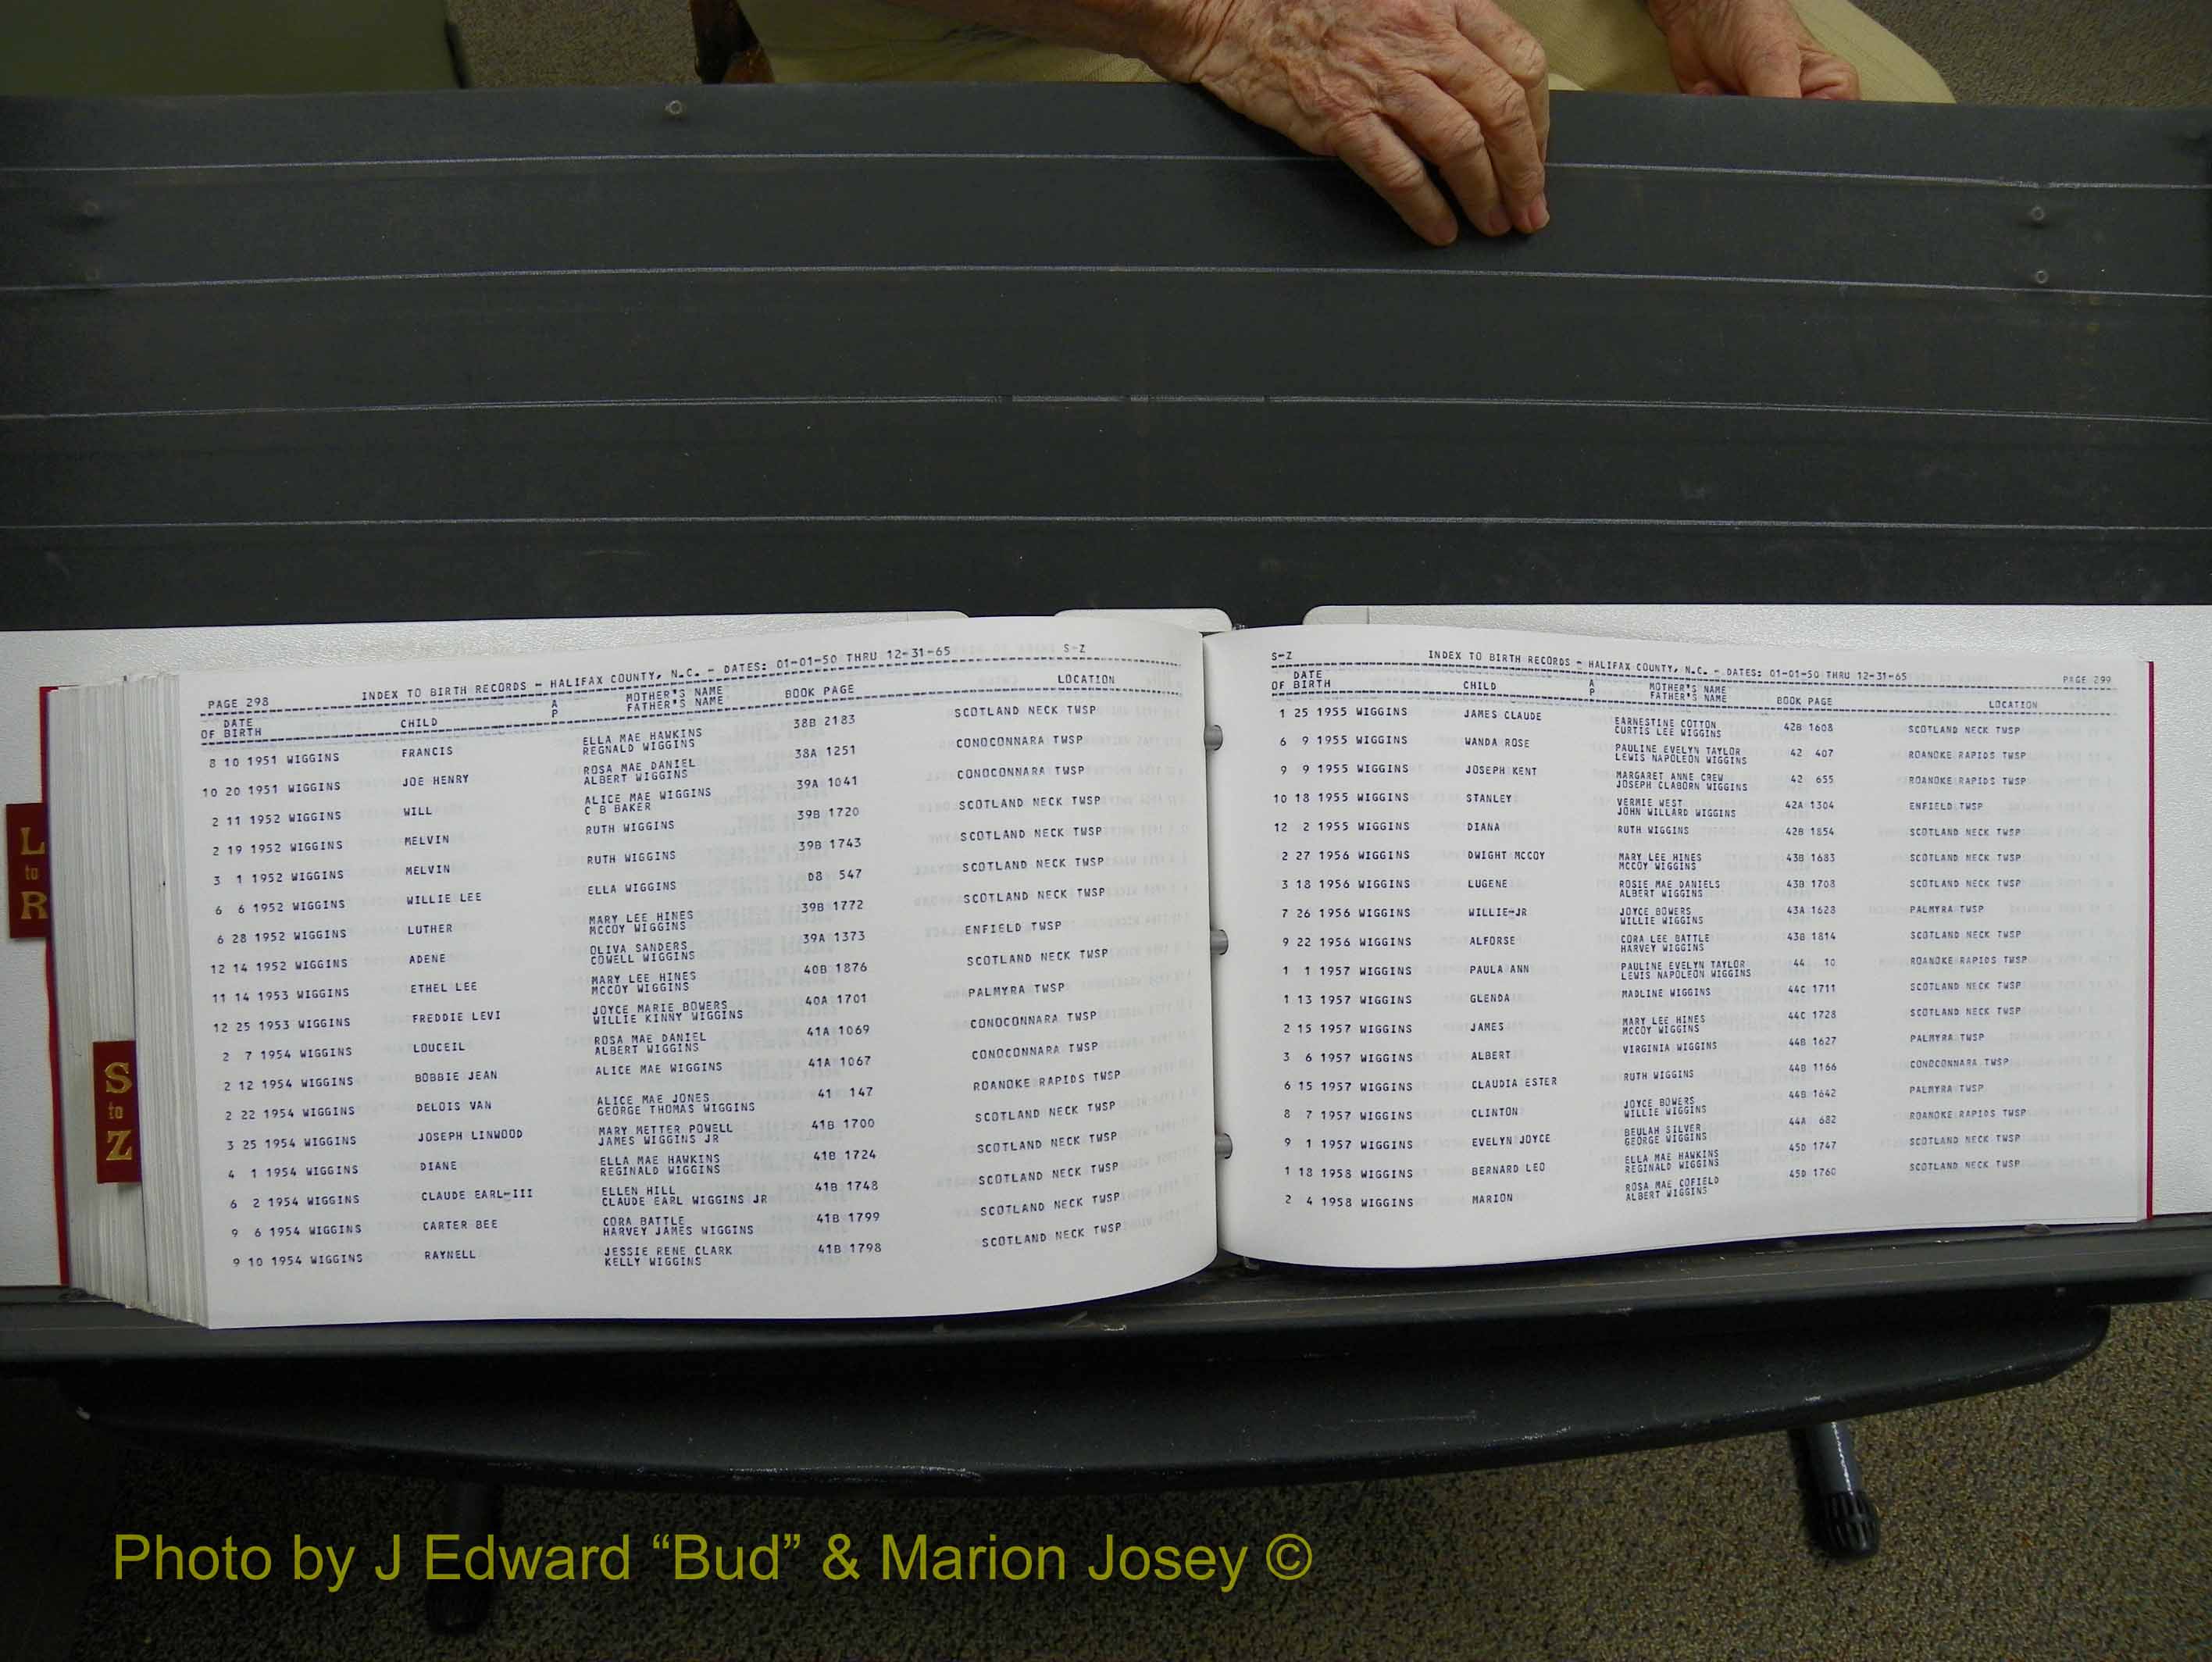 L
to
R
S
to
Z
PAGE 298 INDEX TO BIRTH RECORDS - HALIFAX COUNTY, N.C. - DATES: 01-01-50 THRU 12-31-65 S-Z
DATE OF BIRTH CHILD A P MOTHER'S NAME FATHER'S NAME BOOK PAGE LOCATION
8 10 1951 WIGGINS FRANCIS ELLA MAE HAWKINS 38B 2183 SCOTLAND NECK TWSP
REGNALD WIGGINS
10 20 1951 WIGGINS JOE HENRY ROSA MAE DANIEL 38A 1251 CONOCONNARA TWSP
ALBERT WIGGINS
2 11 1952 WIGGINS WILL ALICE MAE WIGGINS 39A 1041 CONOCONNARA TWSP
C B BAKER
2 19 1952 WIGGINS MELVIN RUTH WIGGINS 39B 1720 SCOTLAND NECK TWSP
3 1 1952 WIGGINS MELVIN RUTH WIGGINS 39B 1743 SCOTLAND NECK TWSP
6 6 1952 WIGGINS WILLIE LEE ELLA WIGGINS D8 547 SCOTLAND NECK TWSP
6 28 1952 WIGGINS LUTHER MARY LEE HINES 39B 1772 SCOTLAND NECK TWSP
MCCOY WIGGINS
12 14 1952 WIGGINS ADENE OLIVA SANDERS 39A 1373 ENFIELD TWSP
COWELL WIGGINS
11 14 1953 WIGGINS ETHEL LEE MARY LEE HINES 40B 1876 SCOTLAND NECK TWSP
MCCOY WIGGINS
12 25 1953 WIGGINS FREDDIE LEVI JOYCE MARIE BOWERS 40A 1701 PALMYRA TWSP
WILLIE KINNY WIGGINS
2 7 1954 WIGGINS LOUCEIL ROSA MAE DANIEL 41A 1069 CONOCONNARA TWSP
ALBERT WIGGINS
2 12 1954 WIGGINS BOBBIE JEAN ALICE MAE WIGGINS 41A 1067 CONOCONNARA TWSP
2 22 1954 WIGGINS DELOIS VAN ALICE MAE JONES 41 147 ROANOKE RAPIDS TWSP
GEORGE THOMAS WIGGINS
3 25 1954 WIGGINS JOSEPH LINWOOD MARY METTER POWELL 41B 1700 SCOTLAND NECK TWSP
JAMES WIGGINS JR
4 1 1954 WIGGINS DIANE ELLA MAE HAWKINS 41B 1724 SCOTLAND NECK TWSP
REGINALD WIGGINS
6 2 1954 WIGGINS CLAUDE EARL-III ELLEN HILL 41B 1748 SCOTLAND NECK TWSP
CLAUDE EARL WIGGINS JR
9 6 1954 WIGGINS CARTER BEE CORA BATTLE 41B 1799 SCOTLAND NECK TWSP
HARVEY JAMES WIGGINS
9 10 1954 WIGGINS RAYNELL JESSIE RENE CLARK 41B 1798 SCOTLAND NECK TWSP
KELLY WIGGINS
S-Z INDEX TO BIRTH RECORDS - HALIFAX COUNTY, N.C. - DATES: 01-01-50 THRU 12-31-65 PAGE 299
DATE OF BIRTH CHILD A P MOTHER'S NAME FATHER'S NAME BOOK PAGE LOCATION
1 25 1955 WIGGINS JAMES CLAUDE EARNESTINE COTTON 42B 1608 SCOTLAND NECK TWSP
CURTIS LEE WIGGINS
6 9 1955 WIGGINS WANDA ROSE PAULINE EVELYN TAYLOR 42 407 ROANOKE RAPIDS TWSP
LEWIS NAPOLEON WIGGINS
9 9 1955 WIGGINS JOSEPH KENT MARGARET ANNE CREW 42 655 ROANOKE RAPIDS TWSP
JOSEPH CLABORN WIGGINS
10 18 1955 WIGGINS STANLEY VERMIE WEST 42A 1304 ENFIELD TWSP
JOHN WILLARD WIGGINS
12 2 1955 WIGGINS DIANA RUTH WIGGINS 42B 1854 SCOTLAND NECK TWSP
2 27 1956 WIGGINS DWIGHT MCCOY MARY LEE HINES 43B 1683 SCOTLAND NECK TWSP
MCCOY WIGGINS
3 18 1956 WIGGINS LUGENE ROSIE MAE DANIELS 43B 1708 SCOTLAND NECK TWSP
ALBERT WIGGINS
7 26 1956 WIGGINS WILLIE-JR JOYCE BOWERS 43A 1628 PALMYRA TWSP
WILLIE WIGGINS
9 22 1956 WIGGINS ALFORSE CORA LEE BATTLE 43B 1814 SCOTLAND NECK TWSP
HARVEY WIGGINS
1 1 1957 WIGGINS PAULA ANN PAULINE EVELYN TAYLOR 44 10 ROANOKE RAPIDS TWSP
LEWIS NAPOLEON WIGGINS
1 13 1957 WIGGINS GLENDA MADLINE WIGGINS 44C 1711 SCOTLAND NECK TWSP
2 15 1957 WIGGINS JAMES MARY LEE HINES 44C 1728 SCOTLAND NECK TWSP
MCCOY WIGGINS
3 6 1957 WIGGINS ALBERT VIRGINIA WIGGINS 44B 1627 PALMYRA TWSP
6 15 1957 WIGGINS CLAUDIA ESTER RUTH WIGGINS 44B 1166 CONOCONNARA TWSP
8 7 1957 WIGGINS CLINTON JOYCE BOWERS 44B 1642 PALMYRA TWSP
WILLIE WIGGINS
9 1 1957 WIGGINS EVELYN JOYCE BEULAH SILVER 44A 682 ROANOKE RAPIDS TWSP
GEORGE WIGGINS
1 18 1958 WIGGINS BERNARD LEO ELLA MAE HAWKINS 45D 1747 SCOTLAND NECK TWSP
REGINALD WIGGINS
2 4 1958 WIGGINS MARION ROSA MAE COFIELD 45D 1760 SCOTLAND NECK TWSP
ALBERT WIGGINS
Photo by J Edward “Bud” & Marion Josey ©